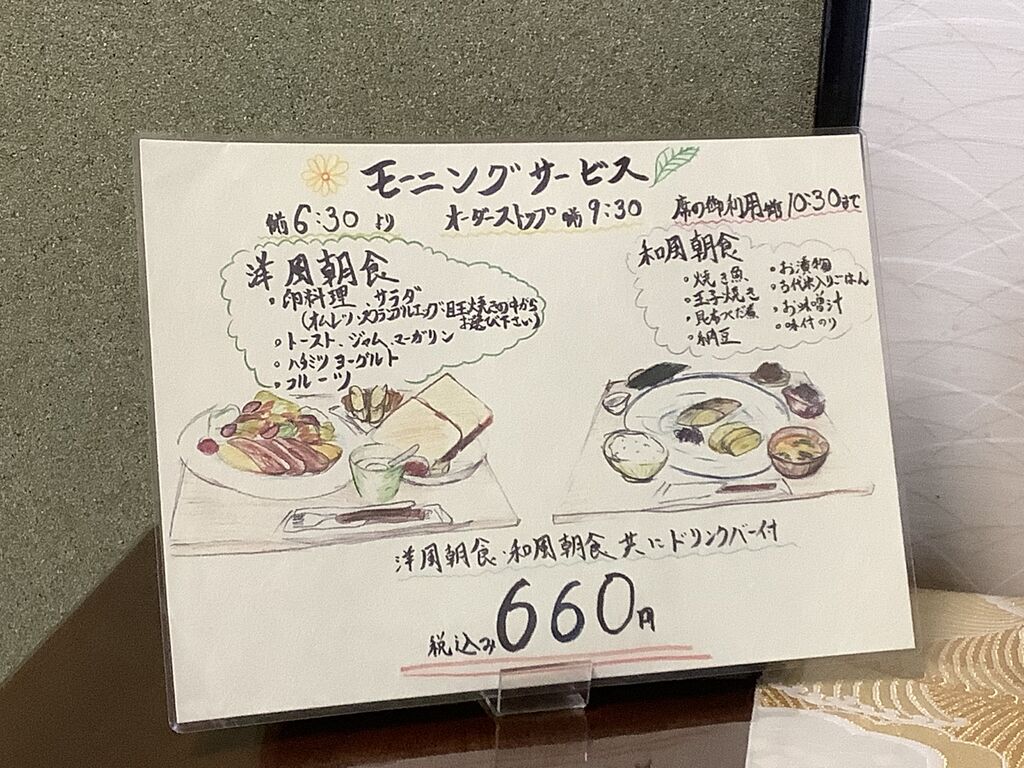 モーニングサービス
午前6:30より オーダーストップ 午前9:30 席の御利用 午前10:30まで
洋風朝食
・卵料理、サラダ
(オムレツ・スクランブルエッグ・目玉焼きの中から
お選び下さい)
・トースト、ジャム、マーガリン
・ハチミツヨーグルト
・フルーツ
和風朝食
・焼き魚
・玉子焼き
・昆布つくだ煮
・納豆
・お漬物
・古代米入りごはん
・お味噌汁
・味付のり
洋風朝食・和風朝食 共にドリンクバー付
税込み660円